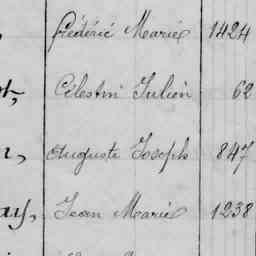 Frédéric Marie 1424
Célestin Julien 62
Auguste Joseph 847
Jean Marie 1238